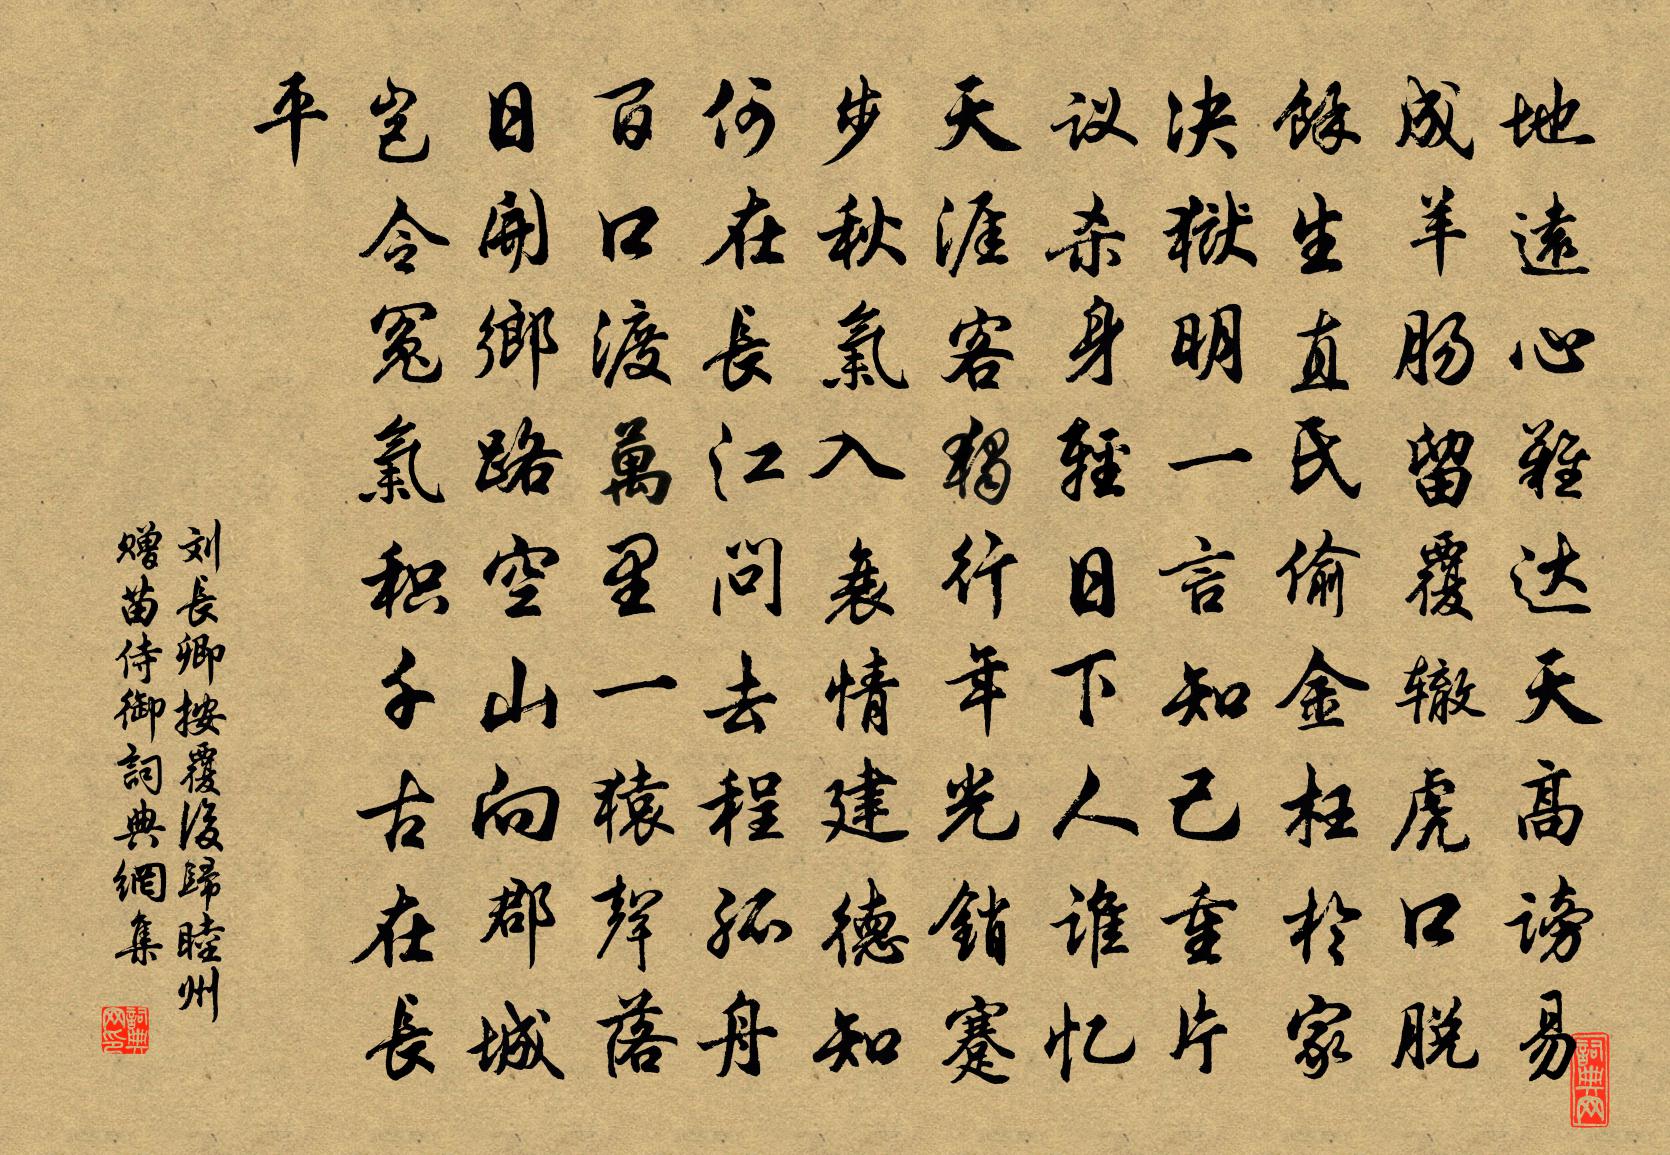 地遠心難达天高謗易
成羊肠留覆辙虎口脱
餘生直氏偷金枉於家
决獄明一言知己重片
议杀身輕日下人谁忆
天涯客獨行年光銷蹇
步秋氣入衰情建德知
何在長江問去程孤舟
百口渡萬里一猿聲落
日開鄉路空山向郡城
岂令冤氣积千古在長
平
刘長卿按覆後歸睦州
赠苗侍御詞典網集
詞典网
詞典网印